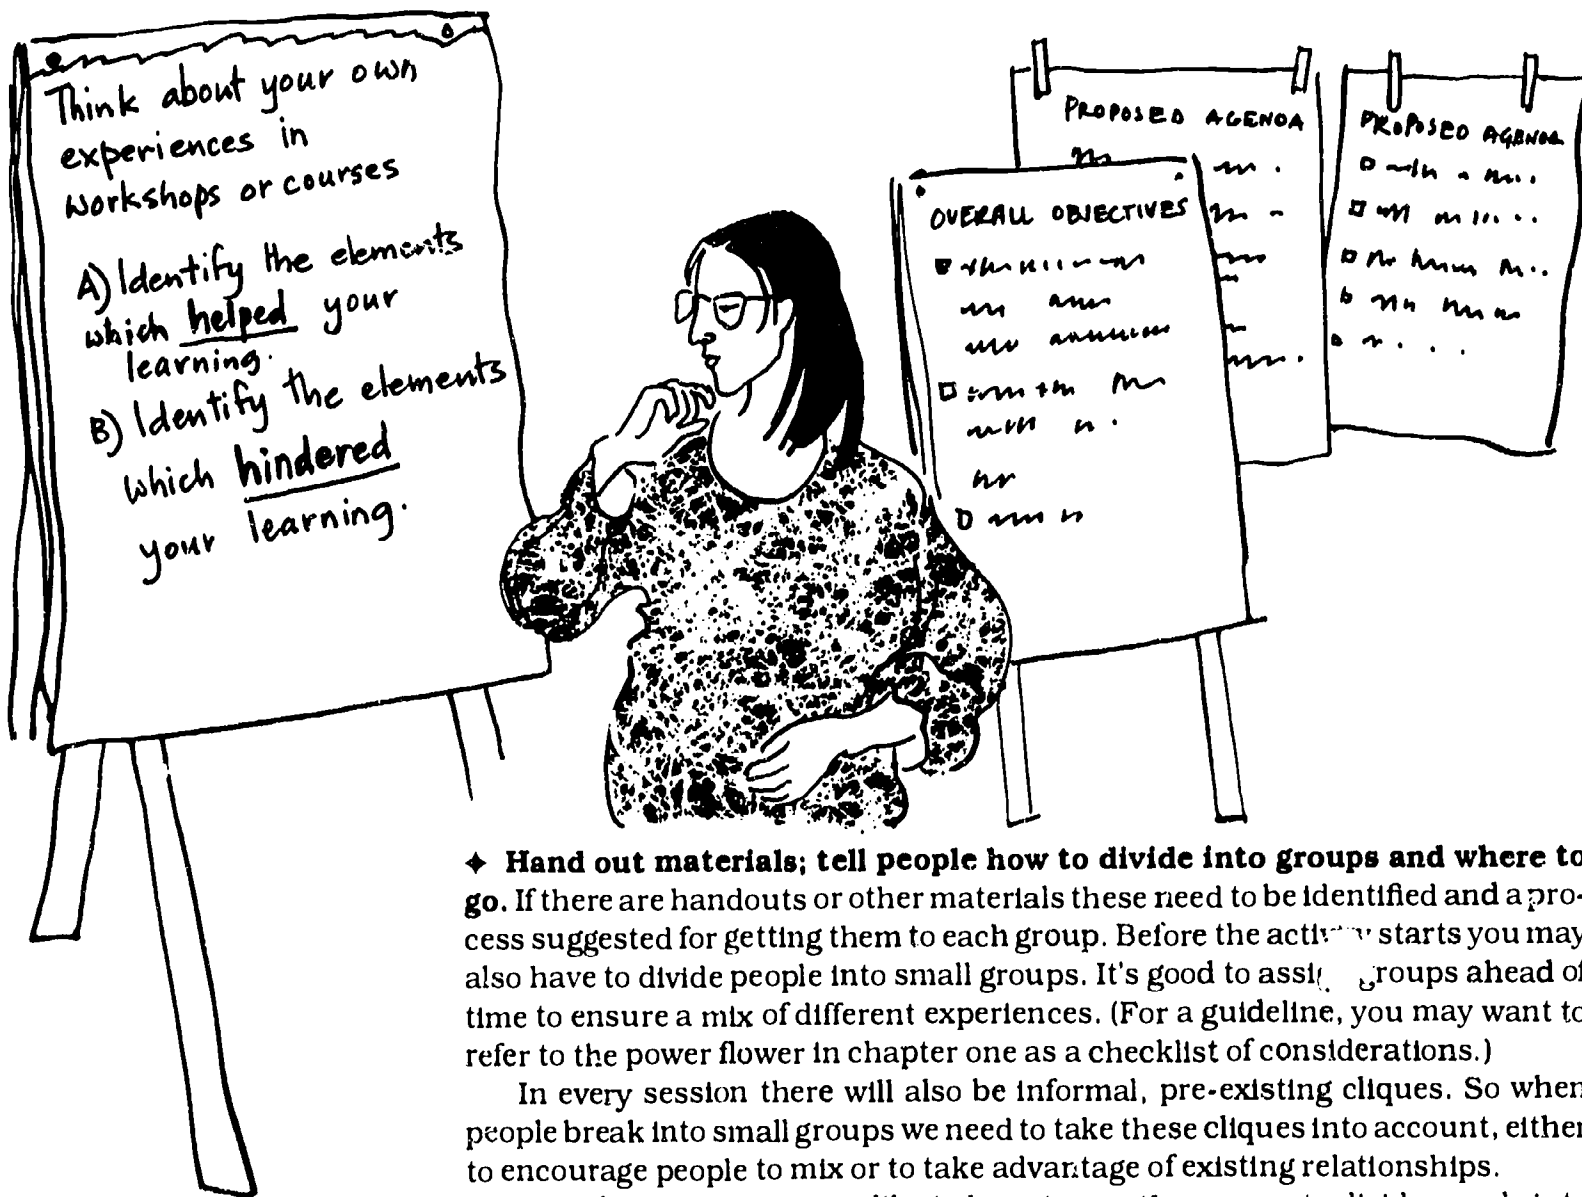 Think about your own
experiences in
workshops or courses
A) Identify the elements
which helped your
learning.
B) Identify the elements
which hindered
your learning.
PROPOSED AGENDA
PROPOSED AGENDA
OVERALL OBJECTIVES
✦ Hand out materials; tell people how to divide into groups and where to
go. If there are handouts or other materials these need to be identified and a pro-
cess suggested for getting them to each group. Before the starts you may
also have to divide people into small groups. It's good to groups ahead of
time to ensure a mix of different experiences. (For a guideline, you may want to
refer to the power flower in chapter one as a checklist of considerations.)
In every session there will also be informal, pre-existing cliques. So when
people break into small groups we need to take these cliques into account, either
to encourage people to mix or to take advantage of existing relationships.